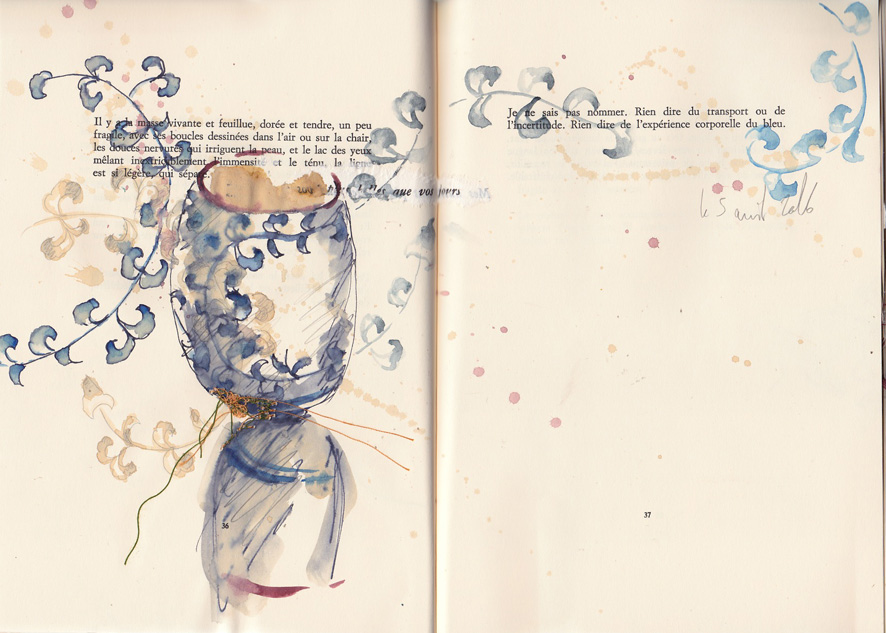 Il y a la masse vivante et feuillue, dorée et tendre, un peu
fragile, avec ses boucles dessinées dans l'air ou sur la chair,
les douces nervures qui irriguent la peau, et le lac des yeux
mêlant inextricablement l'immensité et le ténu, la ligne
est si légère, qui sépare.
belles que vos jours
36
Je ne sais pas nommer. Rien dire du transport ou de
l'incertitude. Rien dire de l'expérience corporelle du bleu.
le 5 avril 2016
37